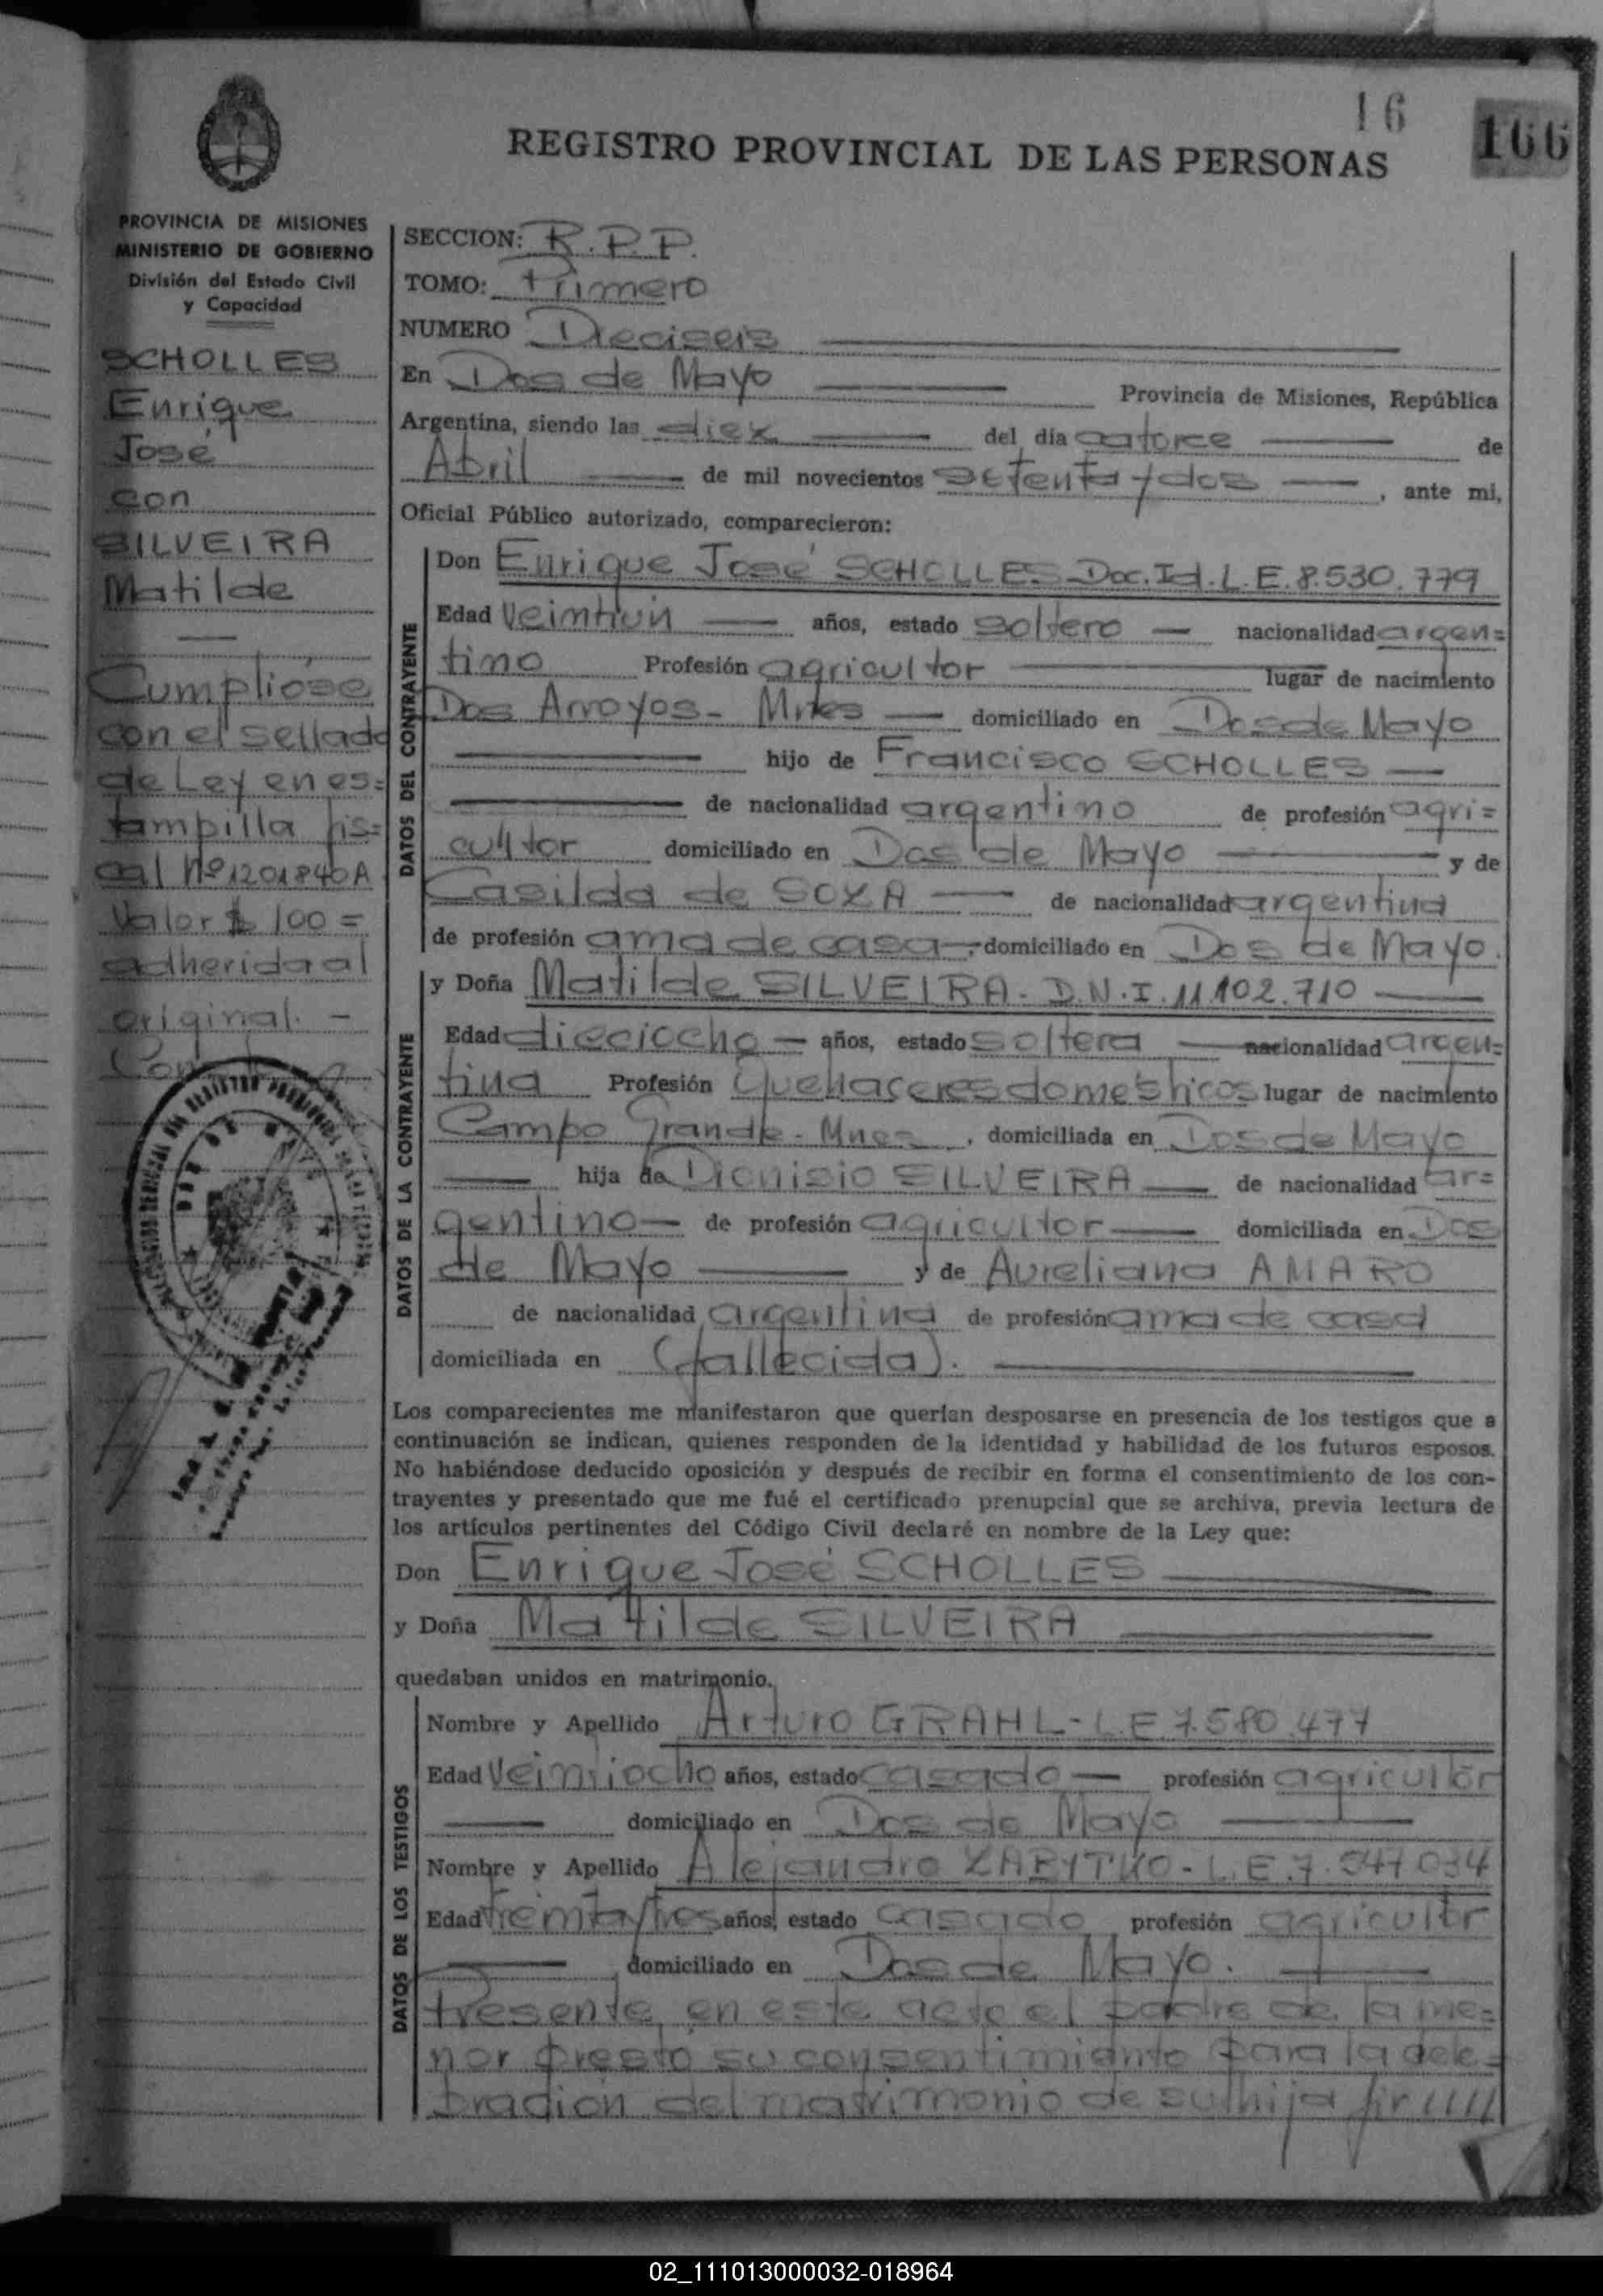 16
166
REGISTRO PROVINCIAL DE LAS PERSONAS
PROVINCIA DE MISIONES
MINISTERIO DE GOBIERNO
División del Estado Civil
y Capacidad
SCHOLLES
Enrique
José
con
SILVEIRA
Matilde
Cumplióse
con el sellado
de Ley en es=
tampilla fis=
cal Nº 1201840A
Valor $ 100=
adherida al
original. -
SECCION: R.P.P.
TOMO: Primero
NUMERO Dieciseis
En Dos de Mayo Provincia de Misiones, República
Argentina, siendo las diez del día catorce de
Abril de mil novecientos setenta y dos, ante mi,
Oficial Público autorizado, comparecieron:
DATOS DEL CONTRAYENTE
Don Enrique José SCHOLLES Doc. Id. L.E. 8.530.779
Edad Veintiun años, estado soltero nacionalidad argen=
tino Profesión agricultor lugar de nacimiento
Dos Arroyos - Mnes domiciliado en Dos de Mayo
hijo de Francisco SCHOLLES
de nacionalidad argentino de profesión agri=
cultor domiciliado en Dos de Mayo y de
Casilda de SOZA de nacionalidad argentina
de profesión ama de casa, domiciliado en Dos de Mayo.
DATOS DE LA CONTRAYENTE
y Doña Matilde SILVEIRA. D.N.I. 11.102.710
Edad dieciocho años, estado soltera nacionalidad argen=
tina Profesión Quehaceres domésticos lugar de nacimiento
Campo Grande - Mnes, domiciliada en Dos de Mayo
hija de Dionisio SILVEIRA de nacionalidad ar=
gentino de profesión agricultor domiciliada en Dos
de Mayo y de Aureliana AMARO
de nacionalidad argentina de profesión ama de casa
domiciliada en (fallecida).
Los comparecientes me manifestaron que querían desposarse en presencia de los testigos que a
continuación se indican, quienes responden de la identidad y habilidad de los futuros esposos.
No habiéndose deducido oposición y después de recibir en forma el consentimiento de los con-
trayentes y presentado que me fué el certificado prenupcial que se archiva, previa lectura de
los artículos pertinentes del Código Civil declaré en nombre de la Ley que:
Don Enrique José SCHOLLES
y Doña Matilde SILVEIRA
quedaban unidos en matrimonio.
DATOS DE LOS TESTIGOS
Nombre y Apellido Arturo GRAHL - L.E 7.580.477
Edad Veintiocho años, estado casado profesión agricultor
domiciliado en Dos de Mayo
Nombre y Apellido Alejandro ZABYTKO - L.E. 7.547.034
Edad treinta y tres años, estado casado profesión agricultor
domiciliado en Dos de Mayo.
Presente en este acto el padre de la me=
nor prestó su consentimiento para la cele=
bración del matrimonio de su hija fir
02_111013000032-018964